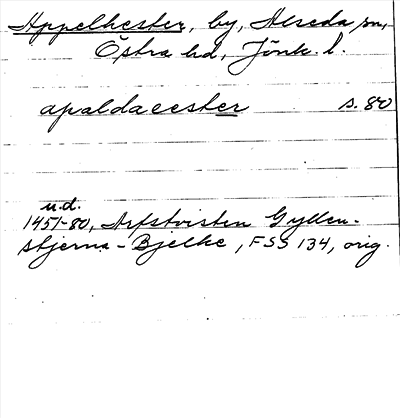 Appelkester, by, Alseda sn,
Östra hd, Jönk. l.
apaldaeester s. 80
u.d.
1451-80, Arfstvisten Gyllen-
stjerna - Bjelke, FSS 134, orig.